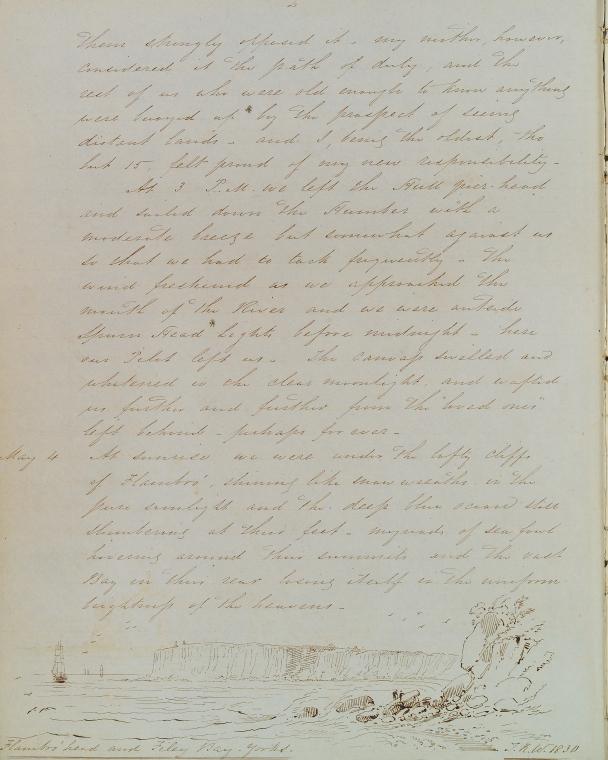 2
them strongly opposed it - my mother, however,
considered it the path of duty, and the
rest of us who were old enough to know anything
were buoyed up by the prospect of seeing
distant lands - and I, being the oldest, tho
but 15, felt proud of my new responsibility -
At 3 P.M. we left the Hull pier-head
and sailed down the Humber with a
moderate breeze but somewhat against us
so that we had to tack frequently - the
wind freshened as we approached the
mouth of the River and we were outside
Spurn Head Lights before midnight - here
our Pilot left us - The canvass swelled and
whitened in the clear moonlight, and wafted
us further and further from the "loved ones"
left behind - perhaps for ever -
May 4 At sunrise we were under the lofty cliffs
of Flambro', shining like snow wreaths in the
pure sunlight and the deep blue ocean still
slumbering at their feet - myriads of sea fowl
hovering around their summits and the vast
Bay in their rear losing itself in the uniform
brightness of the heavens -
Flambro' head and Filey Bay - Yorks.
T.R.W. 1830